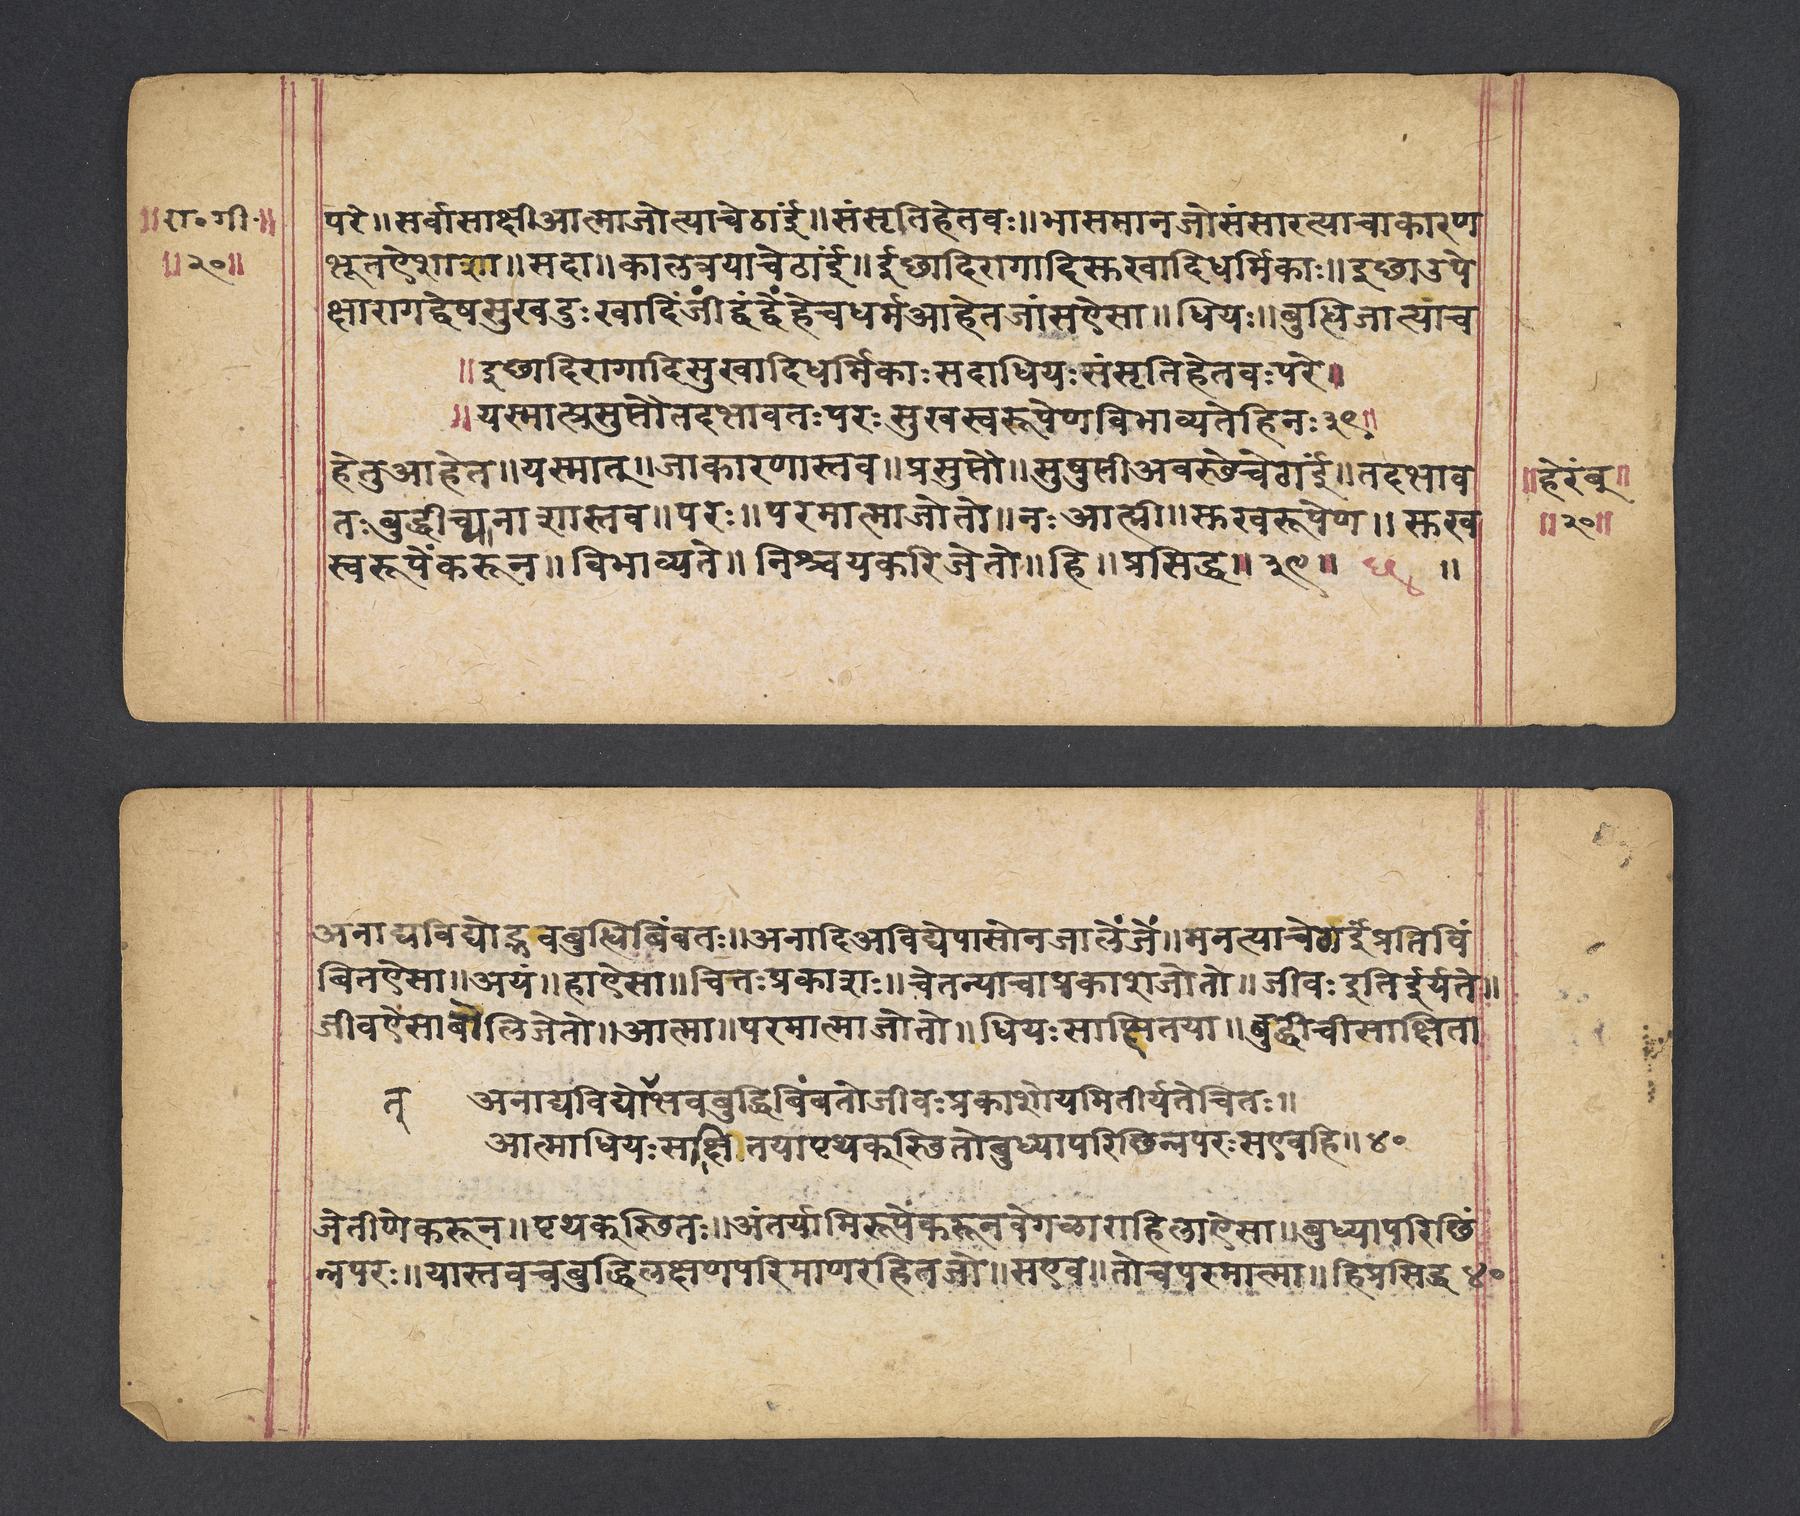 ॥रा॰गी॰॥
॥२०॥
परे॥सर्वासाक्षीआत्माजोत्याचेठाईं॥संसृतिहेतवः॥भासमानजोसंसारत्याचाकारण
भूतऐशाशा॥सदा॥कालत्रयाचेठाईं॥ईछादिरागादिसुखादिधर्मिकाः॥इछाउपे
क्षारागद्वेषसुखदुःखादिंजींद्वंद्वेंहेचधर्मआहेतजांसऐसा॥धियः॥बुत्धिजात्यांच
॥इछादिरागादिसुखादिधर्मिकाःसदाधियःसंसृतिहेतवःपरे॥
॥यस्मात्प्रसुप्तौतदभावतःपरःसुखस्वरूपेणविभाव्यतेहिनः३९॥
हेतुआहेत॥यस्मात्॥जाकारणास्तव॥प्रसुप्तौ॥सुषुप्तीअवस्छेचेठाईं॥तदभाव
तःबुद्धीच्यानाशास्तव॥परः॥परमात्माजोतो॥नःआत्मी॥सुखरूपेण॥सुख
स्वरूपेंकरून॥विभाव्यते॥निश्चयकरिजेतो॥हि॥प्रसिद्ध॥३९॥ ॥
॥हेरंबु॥
॥२०॥
अनाद्यविद्योद्भवबुत्धिबिंबतः॥अनादिअविद्येपासोनजालेंजें॥मनत्याचेठाईंप्रतिबिं
बितऐसा॥अयं॥हाऐसा॥चितःप्रकाशः॥चेतन्याचाप्रकाशजोतो॥जीवःइतिर्इर्यते॥
जीवऐसाबोलिजेतो॥आत्मा॥परमात्माजोतो॥धियःसाक्षितया॥बुद्धीचीसाक्षिता
त् अनाद्यविद्योभवबुद्धिबिंबतोजीवःप्रकाशोयमितीर्यतेचितः॥
आत्माधियःसाक्षितयापृथक्स्छितोबुध्यापरिछिन्नपरःसएवहि॥४०
जेतीणेकरून॥पृथक्स्छितः॥अंतर्यामिरूपेंकरूनवेगळाराहिलाऐसा॥बुध्यापरिछिं
न्नपरः॥यास्तवचबुद्धिलक्षणपरिमाणरहितजो॥सएव॥तोचपरमात्मा॥हिप्रसिद्ध४०